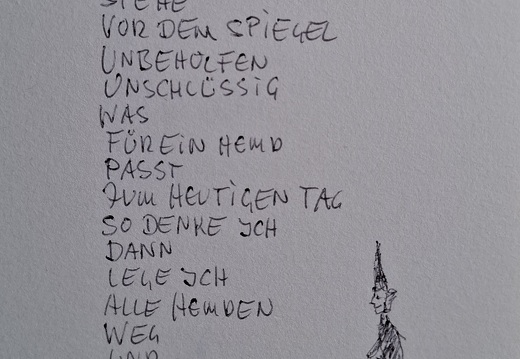 STEHE
VOR DEM SPIEGEL
UNBEHOLFEN
UNSCHLÜSSIG
WAS
FÜR EIN HEMD
PASST
ZUM HEUTIGEN TAG
SO DENKE ICH
DANN
LEGE ICH
ALLE HEMDEN
WEG
UND